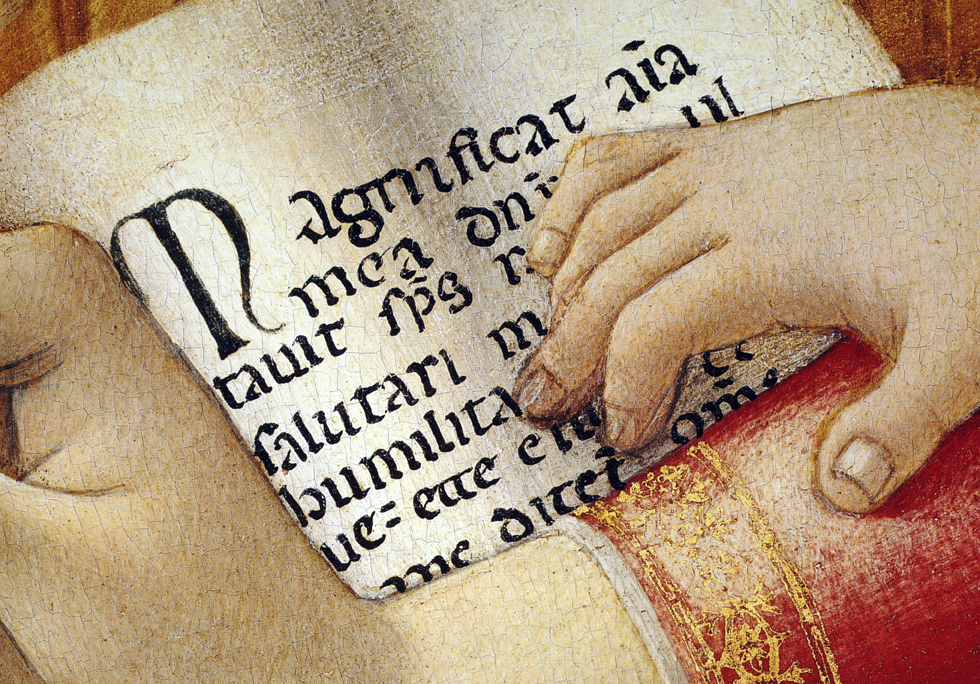 Magnificat aīa
mea dn̄
tauit sp̄s
salutari m
humilita
ue= ecce eni
om̄
me dicet